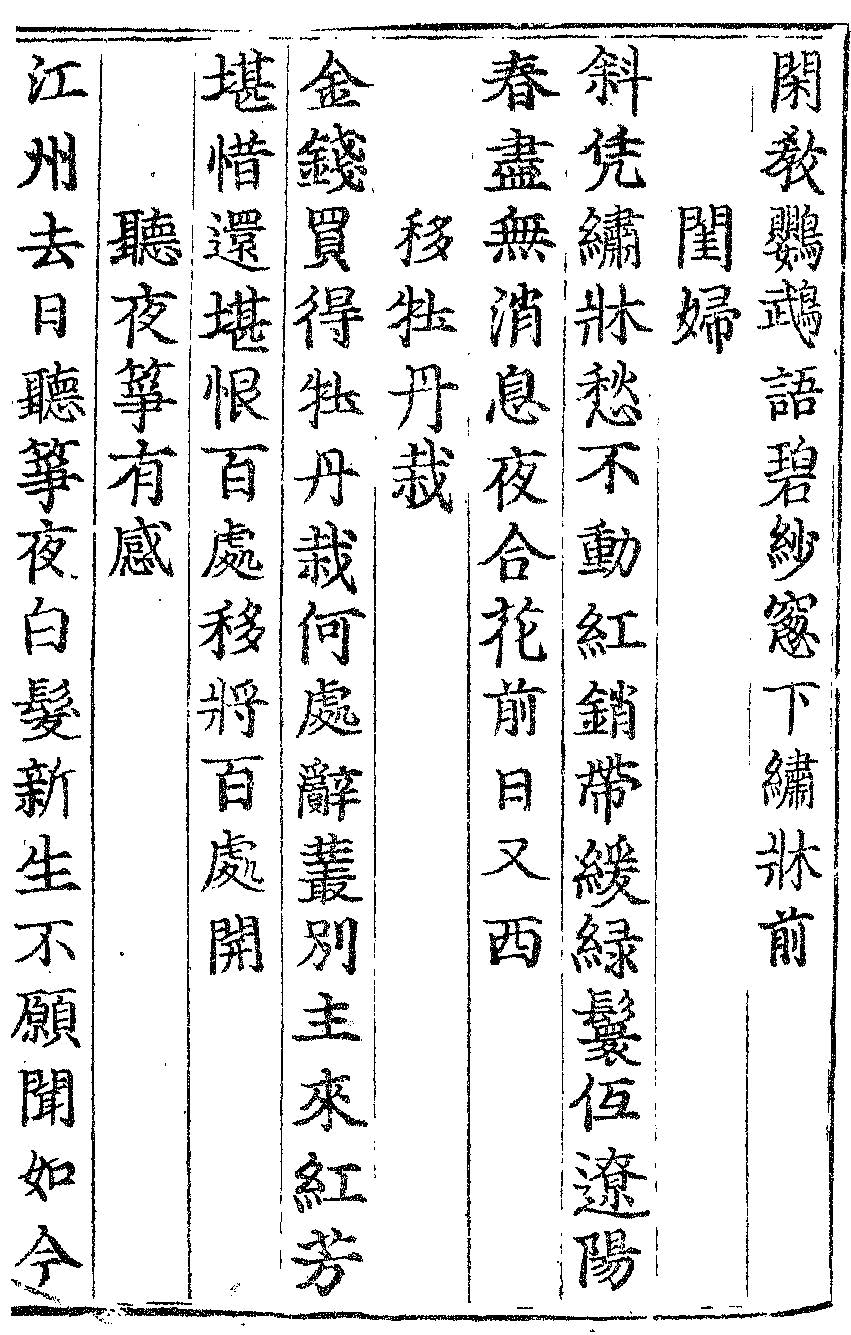 閑敎鸚鵡語碧紗窻下繡牀前
閨婦
斜凭繡牀愁不動紅銷帶緩綠鬟低遼陽
春盡無消息夜合花前日又西
移牡丹栽
金錢買得牡丹栽何處辭叢別主來紅芳
堪惜還堪恨百處移將百處開
聽夜箏有感
江州去日聽箏夜白髮新生不願聞如今